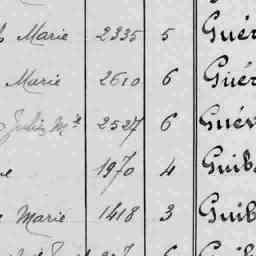 Marie 2335 5 Guér
Marie 2610 6 Guér
Julie Mie 2527 6 Guér
1970 4 Guib
Marie 1418 3 Guib